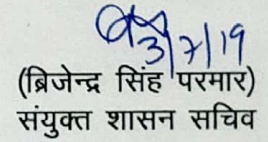 3/7/19
(ब्रिजेन्द्र सिंह परमार)
संयुक्त शासन सचिव